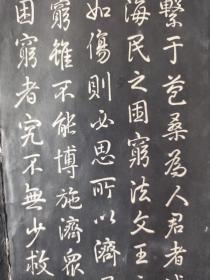 繫于苞桑為人君者
海民之困窮法文王
如傷則必思所以濟
窮雖不能博施濟眾
困窮者完不無少救